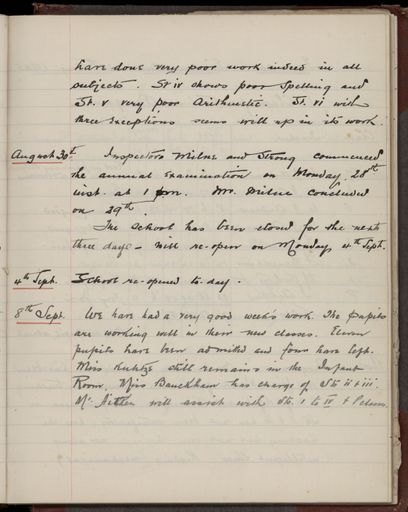 have done very poor work indeed in all
subjects. St iv shows poor Spelling and
St. v very poor Arithmetic. St. vi with
three exceptions seems well up in its work.
August 30th. Inspectors Milne and Strong commenced
the annual Examination on Monday, 28th
inst. at 1 pm. Mr. Milne concluded
on 29th.
The school has been closed for the next
three days - will re-open on Monday, 4th Sept.
4th Sept. School re-opened to-day.
8th Sept. We have had a very good week's work. The pupils
are working well in their new classes. Eleven
pupils have been admitted and four have left.
Miss still remains in the Infant
Room. Miss Bauckham has charge of Sts ii & iii.
Mr. Aitken will assist with Sts. i to iv &